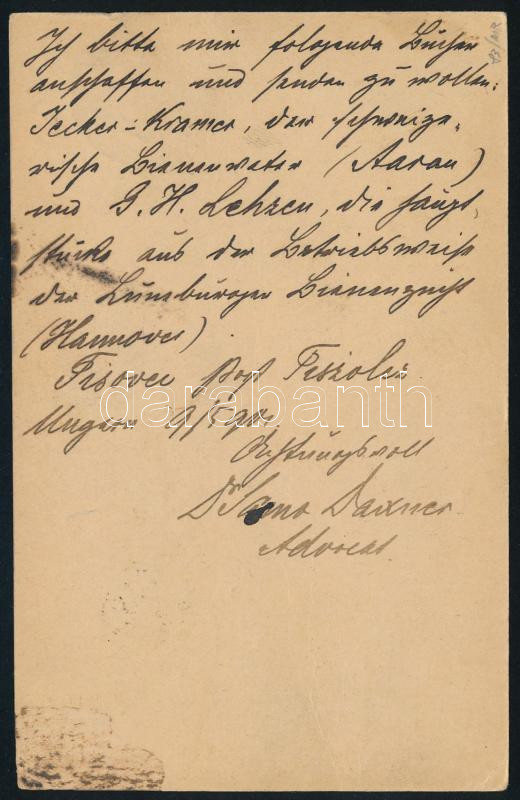 Ich bitte mir folgende Bücher
anschaffen und senden zu wollen:
Jecker-Kramer, der schweize-
rische Bienenvater (Aarau)
und G. H. Lehzen, die Haupt-
stücke aus der Betriebsweise
der Lüneburger Bienenzucht
(Hannover)
Tisovec post
Ungarn 9/5 90.
Achtungsvoll
Dr Samo Daxner
Advocat
darabanth